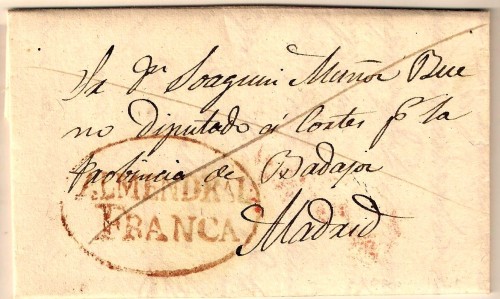 Sr Dn Joaquin Muñoz Bue
no Diputado á Cortes pr la
Provincia de Badajoz
ALMENDRAL
FRANCA
Madrid